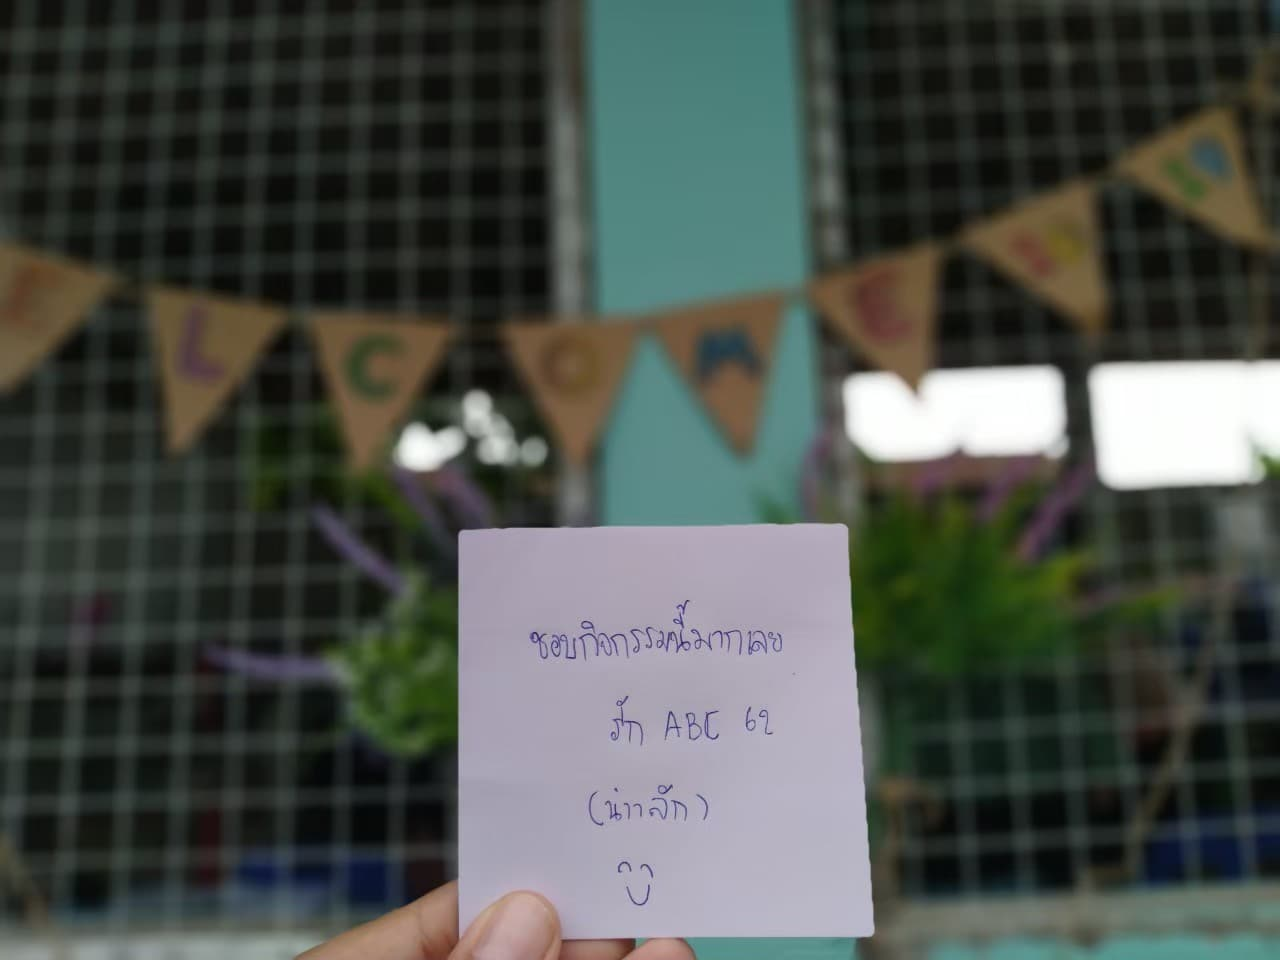 ELCOME
ชอบกิจกรรมนี้มากเลย
รัก ABC 62
(น่าาลัก)